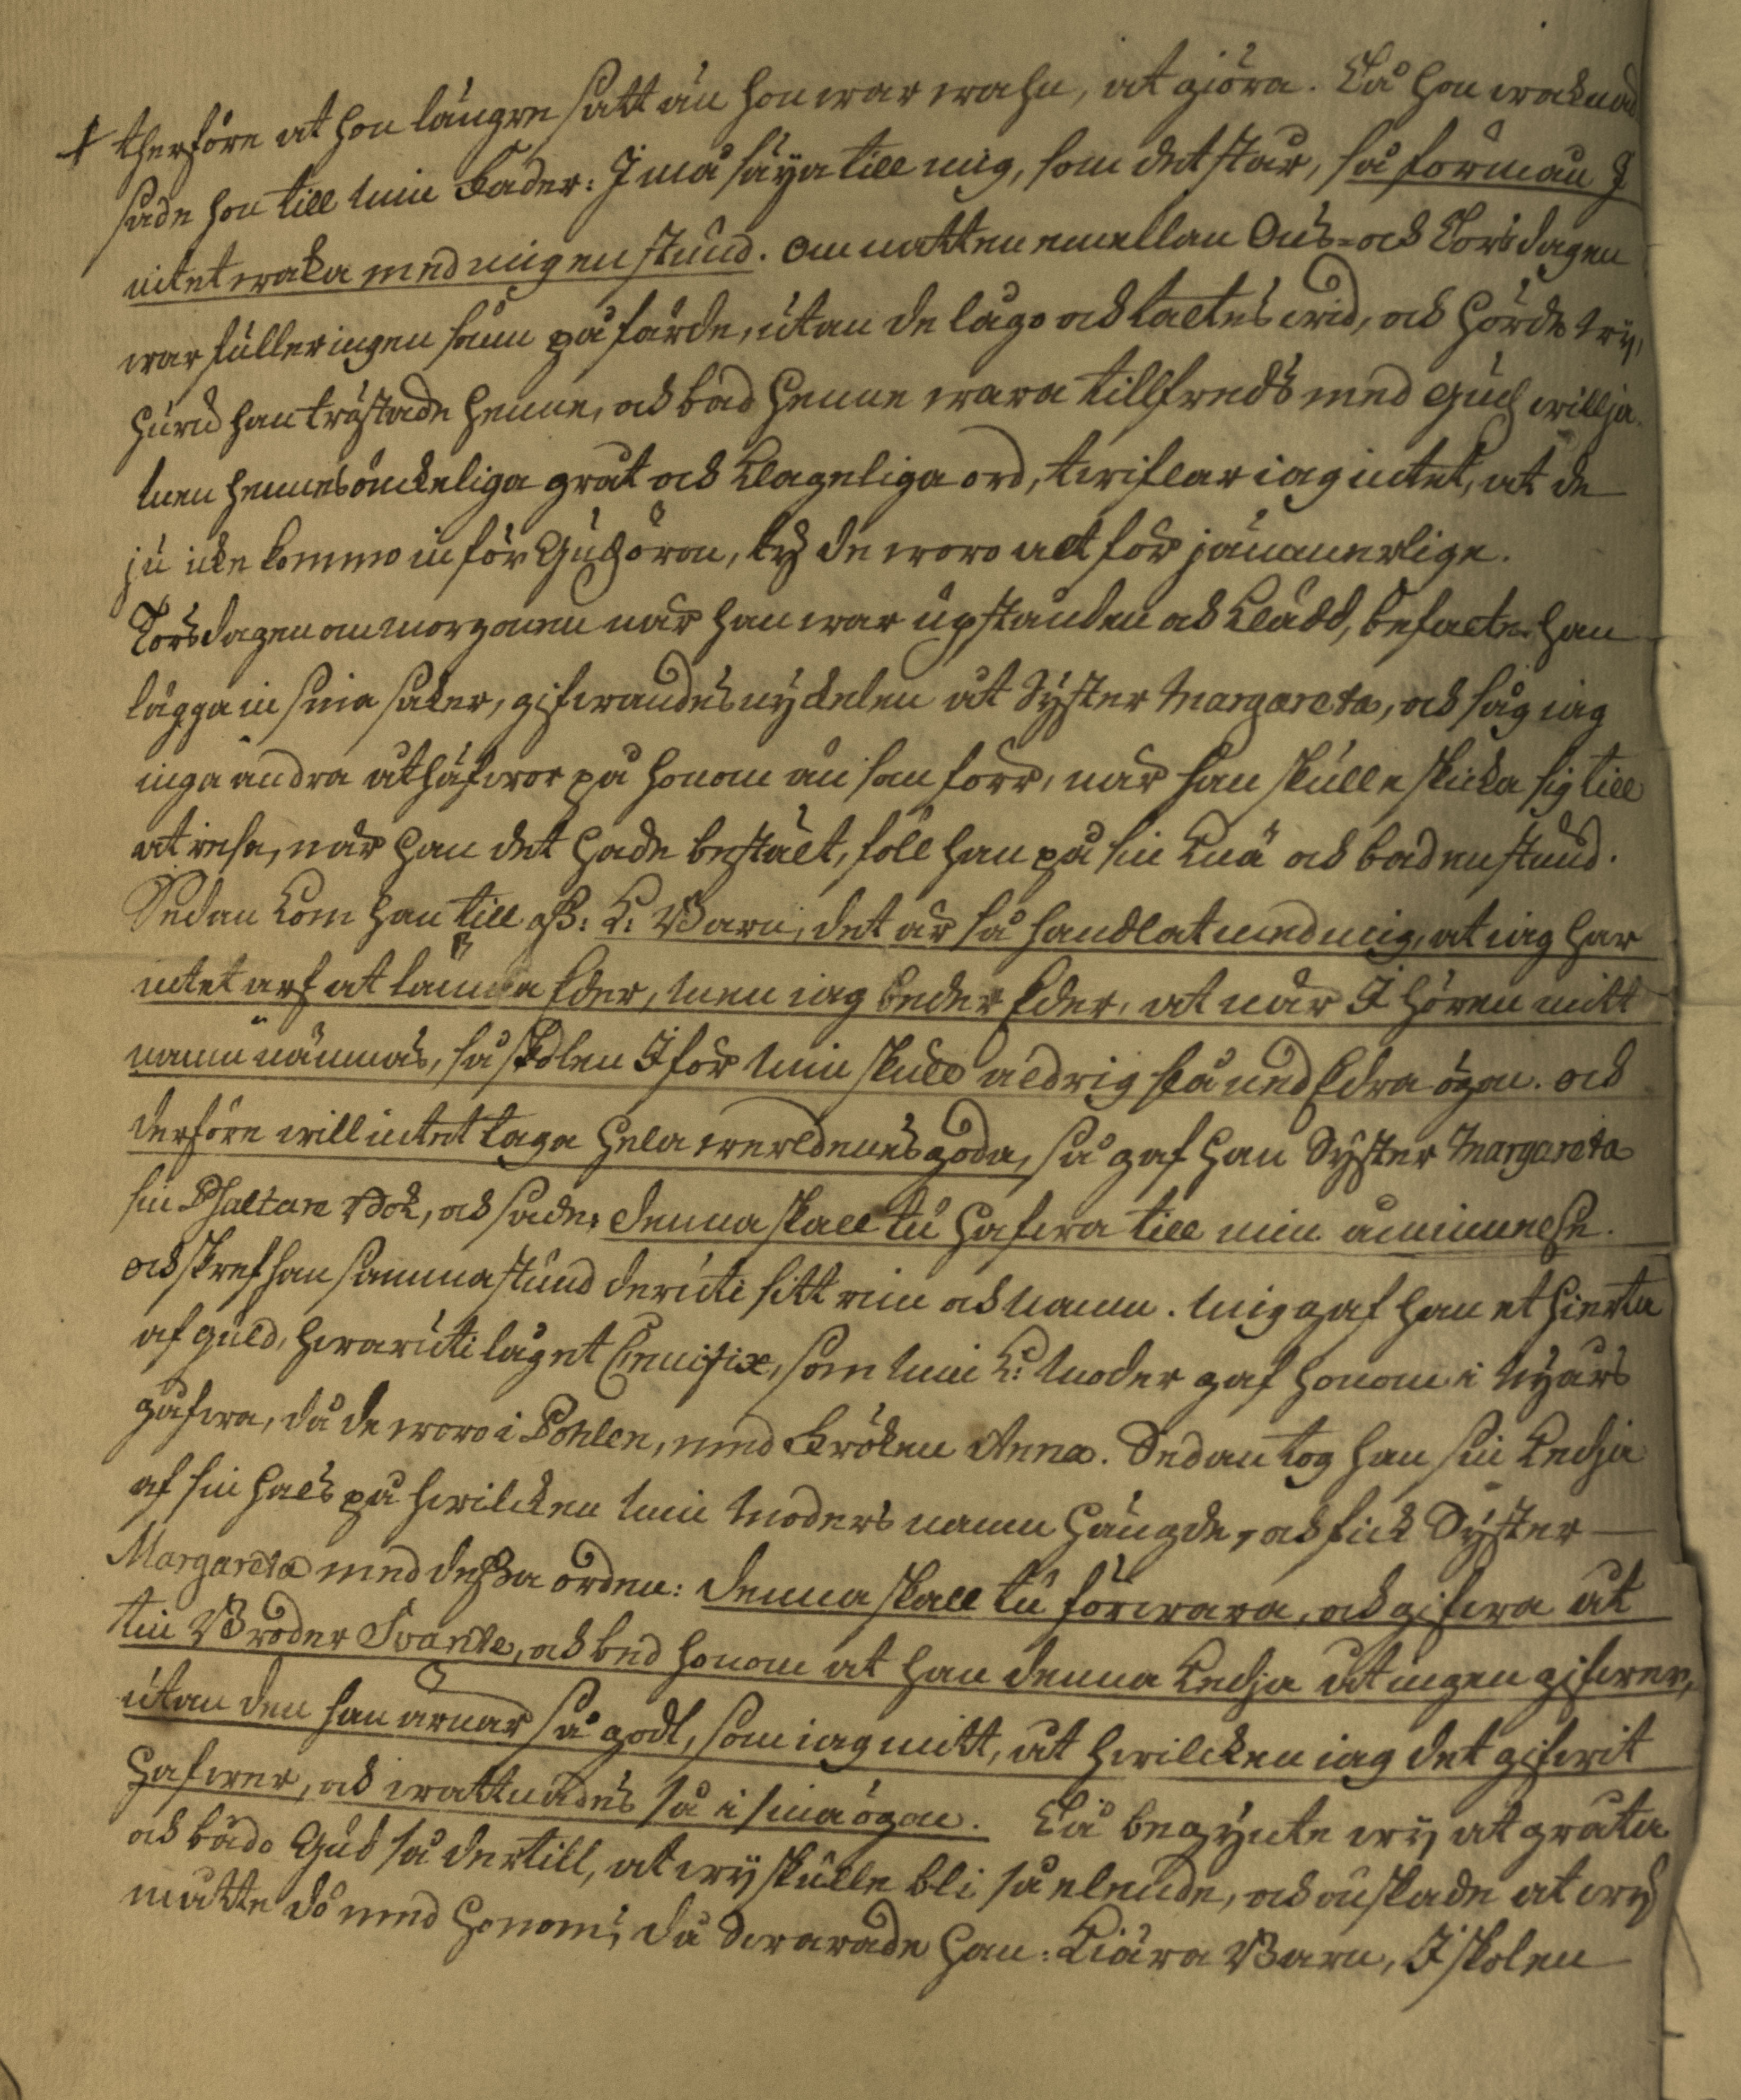 therföre at hon längre satt än hon war wahn, at giöra. Då hon waknad
sade hon till min Fader: I må säÿa till mig, som det står, så förmån I
intet waka med mig en stund. Om natten emellan Ons= och Torsdagen
war fuller ingen sömn på färde, utan de lågo och taltes wid, och hörde wÿ,
huru han tröstade henne, och bad henne wara tillfreds med Gudz willja.
Men hennes ömkeliga gråt och klageliga ord, twiflar iag intet, at de
ju icke kommo in för Gudz öron, tÿ de woro alt för jämmerlige.
Torsdagen om morgonen när han war upstånden och klädd, befalte han
lägga in sina saker, gifwandes nyckelen åt Sÿster Margareta, och såg iag
inga andra åthäfwor på honom än som förr, när han skulle skicka sig till
at resa, när han det hade bestält, föll han på sin knä och bad en stund.
Sedan kom han till oß: K: Barn, det är så handlat med mig, at iag har
intet arf at lämna Eder, men iag beder Eder, at när I hören mitt
namn nämnas, så skolen I för min skull aldrig slå ned Edra ögon. och
derföre will intet taga hela werldenes goda, så gaf han Sÿster Margareta
sin Psaltare Bok, och sade: denna skall tu hafwa till min åminnelse.
och skref han samma stund deruti sitt rim och namn. Mig gaf han et hierta
af guld, hwaruti låg et Crucifix, som min K: Moder gaf honom i Nÿårs
gåfwa, då de woro i Pohlen, med Fröken Anna. Sedan tog han sin Kedja
af sin hals på hwilcken min Moders namn hängde, och fick Sÿster
Margareta med deßa orden: denna skall tu förwara, och gifwa åt
tin Broder Svante, och bed honom at han denna Kedja åt ingen gifwer,
utan den han arnar så godt, som iag mitt, åt hwilcken iag det gifwit
hafwer, och wattnades så i sina ögon. Då begÿnte wÿ at gråta
och bådo Gud så dertill, at wÿ skulle bli så elende, och önskade at wÿ
måtte dö med honom, då Swarade han: Kiära Barn, I skolen